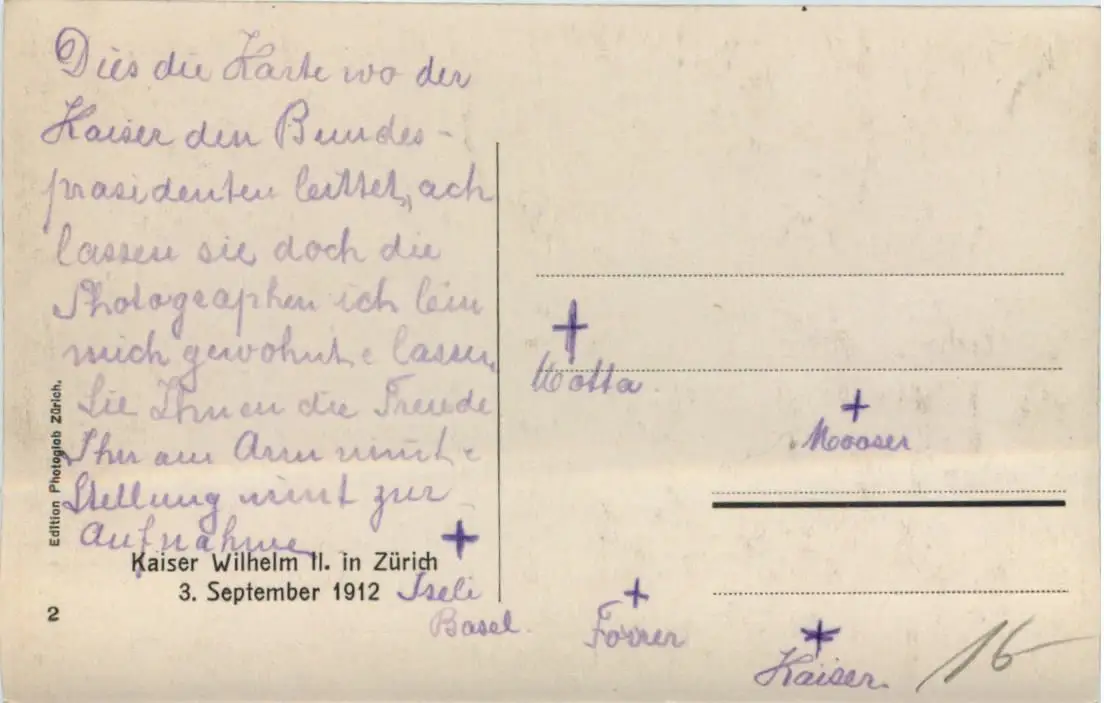 Dies die Karte wo der
Kaiser den Bundes-
präsidenten leittet, ach
lassen sie doch die
Photographen ich bin
mich gewohnt &
lassen
Sie Ihnen die Freude
Ihn am Arm nimt &
Stellung nimt zur
Aufnahme
Edition Photoglob Zürich.
Kaiser Wilhelm II. in Zürich
3. September 1912
2
Iseli
Basel.
Motta
Mooser
Forrer
Kaiser.
16